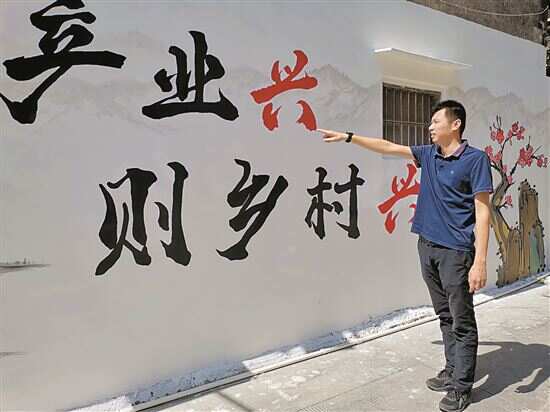 产业兴
则乡村兴